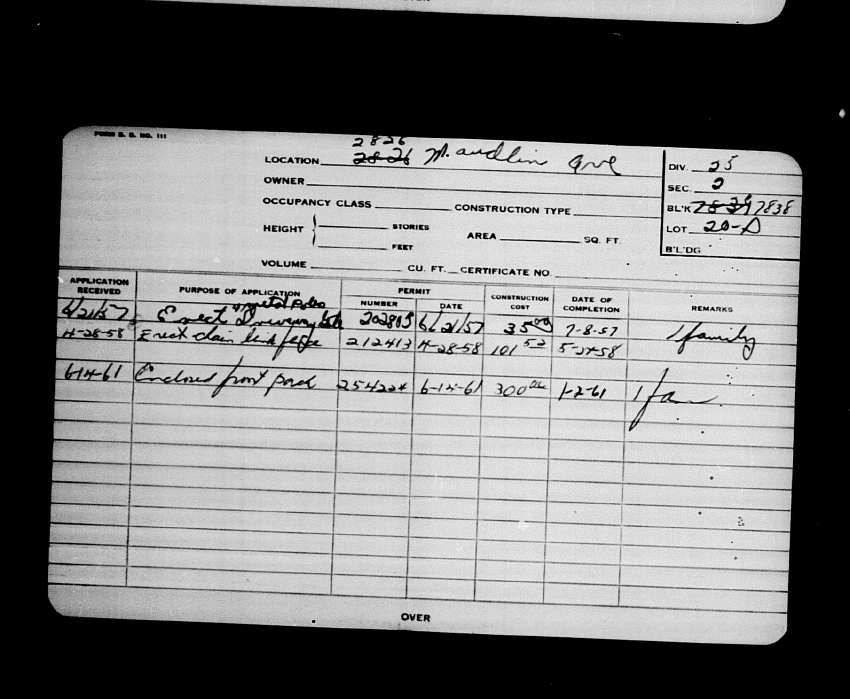 OVER
FORM B. B. NO. 111
2826
LOCATION 2826 Maudlin Ave
DIV. 25
OWNER
SEC. 2
OCCUPANCY CLASS CONSTRUCTION TYPE
BL'K 7838
HEIGHT STORIES AREA SQ. FT.
LOT 20-A
FEET
B'L'DG
VOLUME CU. FT. CERTIFICATE NO.
APPLICATION RECEIVED PURPOSE OF APPLICATION PERMIT NUMBER DATE CONSTRUCTION COST DATE OF COMPLETION REMARKS
metal poles
6/21/57 Erect Driveway 202815 6/21/57 35 00 7-8-57 1 family
4-28-58 Erect chain link fence 212413 4-28-58 101 52 5-27-58
6-14-61 Enclosed front porch 254224 6-14-61 300 00 1-2-61 1 fam
OVER